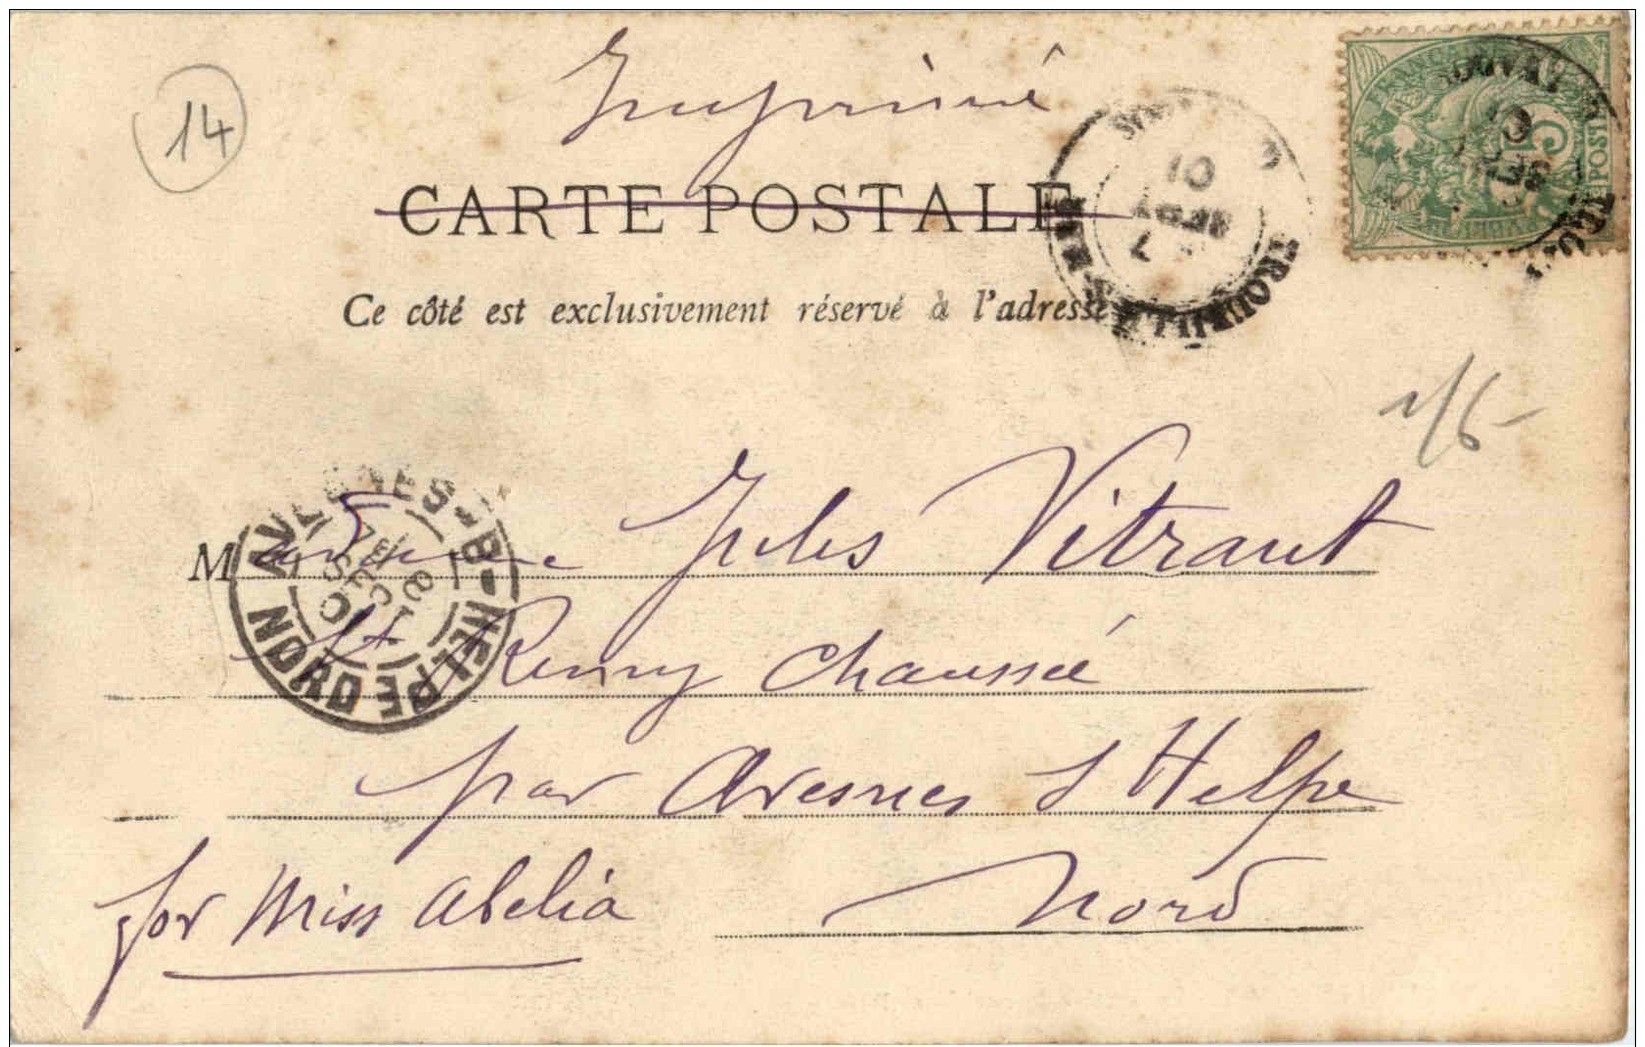 14
Imprimé
CARTE POSTALE
Ce côté est exclusivement réservé à l'adresse
1/6-
Madame Jules Vitrant
St Remy Chaussée
par Avesnes s Helpe
for Miss Abelia
Nord
AVESNES-S-HELPE
NORD
TROUVILLE
5
POSTES